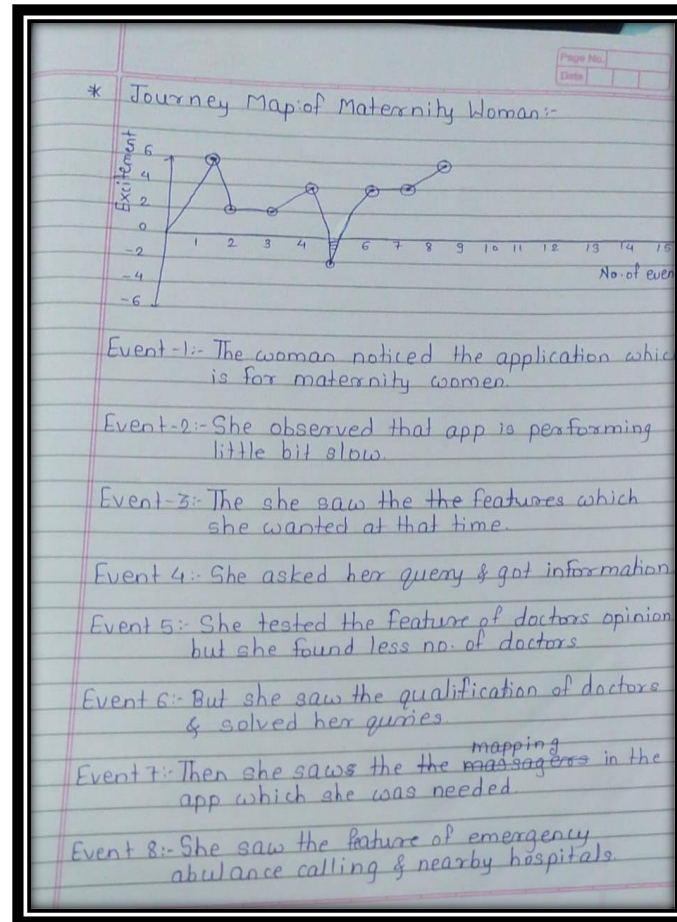 Page No.
Date
* Journey Map of Maternity Woman:-
Excitement
6
4
2
0
-2
-4
-6
1 2 3 4 6 7 8 9 10 11 12 13 14 15
No. of even
Event-1:- The woman noticed the application whic
is for maternity women.
Event-2:- She observed that app is performing
little bit slow.
Event-3:- The she saw the the features which
she wanted at that time.
Event 4:- She asked her query & got information
Event 5:- She tested the feature of doctors opinion
but she found less no. of doctors
Event 6:- But she saw the qualification of doctors
& solved her quries.
mapping
Event 7:- Then she saws the the massagers in the
app which she was needed.
Event 8:- She saw the feature of emergency
abulance calling & nearby hospitals.